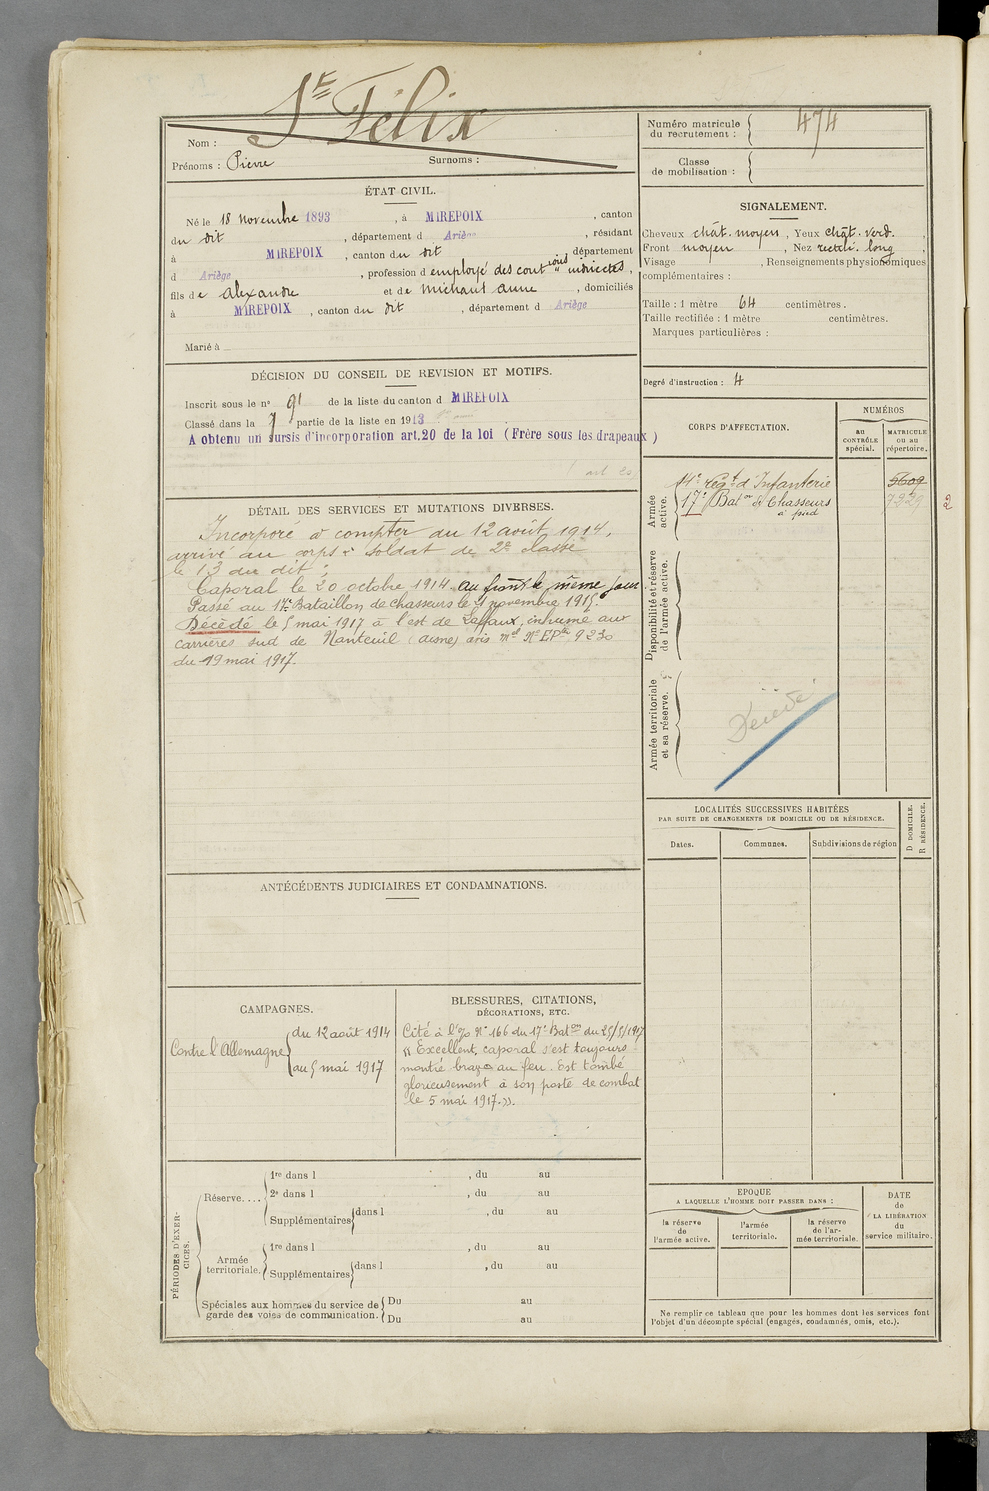 Sᵗᴱ Félix
Nom :
Prénoms : Pierre Surnoms :
ÉTAT CIVIL.
Né le 18 novembre 1893, à MIREPOIX, canton
du dit, département d Ariège, résidant
à MIREPOIX, canton du dit, département
d Ariège, profession d employé des contions indirectes,
fils de Alexandre et de Michaut Anne, domiciliés
à MIREPOIX, canton du dit, département d Ariège
Marié à
DÉCISION DU CONSEIL DE REVISION ET MOTIFS.
Inscrit sous le nº 91 de la liste du canton d MIREPOIX
Classé dans la 7 partie de la liste en 1913
A obtenu un sursis d'incorporation art.20 de la loi (Frère sous les drapeaux)
DÉTAIL DES SERVICES ET MUTATIONS DIVERSES.
Incorporé à compter du 12 août 1914,
arrivé au corps & soldat de 2e classe
le 13 du dit ;
Caporal le 20 octobre 1914. au front le même jour
Passé au 17e Bataillon de chasseurs le 1 novembre 1915.
Décédé le 5 mai 1917 à l'est de Laffaux, inhumé aux
carrières sud de Nanteuil (aisne) avis mel Nº 9230
du 19 mai 1917.
ANTÉCÉDENTS JUDICIAIRES ET CONDAMNATIONS.
CAMPAGNES.
Contre l'Allemagne { du 12 août 1914
au 5 mai 1917
BLESSURES, CITATIONS,
DÉCORATIONS, ETC.
Cité à l'o/o Nº 166 du 17e Baton du 25/5/1917
« Excellent caporal s'est toujours
montré brave au feu. Est tombé
glorieusement à son poste de combat
le 5 mai 1917. ».
PÉRIODES D'EXERCICES.
Réserve.... 1re dans l , du au
2e dans l , du au
Supplémentaires dans l , du au
Armée territoriale. 1re dans l , du au
Supplémentaires dans l , du au
Spéciales aux hommes du service de { Du au
garde des voies de communication. { Du au
Numéro matricule
du recrutement : 474
Classe
de mobilisation :
SIGNALEMENT.
Cheveux chât. moyen, Yeux chât. verd.,
Front moyen, Nez rectil. long,
Visage , Renseignements physionomiques
complémentaires :
Taille : 1 mètre 64 centimètres.
Taille rectifiée : 1 mètre centimètres.
Marques particulières :
Degré d'instruction : 4
CORPS D'AFFECTATION.
NUMÉROS
au
CONTRÔLE
spécial.
MATRICULE
ou au
répertoire.
Armée
active.
14e régt d'Infanterie 5609
17e Baton de Chasseurs 7229 2
à pied
Disponibilité et réserve
de l'armée active.
Armée territoriale
et sa réserve.
Décédé
LOCALITÉS SUCCESSIVES HABITÉES
PAR SUITE DE CHANGEMENTS DE DOMICILE OU DE RÉSIDENCE.
D DOMICILE.
R RÉSIDENCE.
Dates. Communes. Subdivisions de région
ÉPOQUE
A LAQUELLE L'HOMME DOIT PASSER DANS :
la réserve
de
l'armée active.
l'armée
territoriale.
la réserve
de l'ar-
mée territoriale.
DATE
de
LA LIBÉRATION
du
service militaire.
Ne remplir ce tableau que pour les hommes dont les services font
l'objet d'un décompte spécial (engagés, condamnés, omis, etc.).